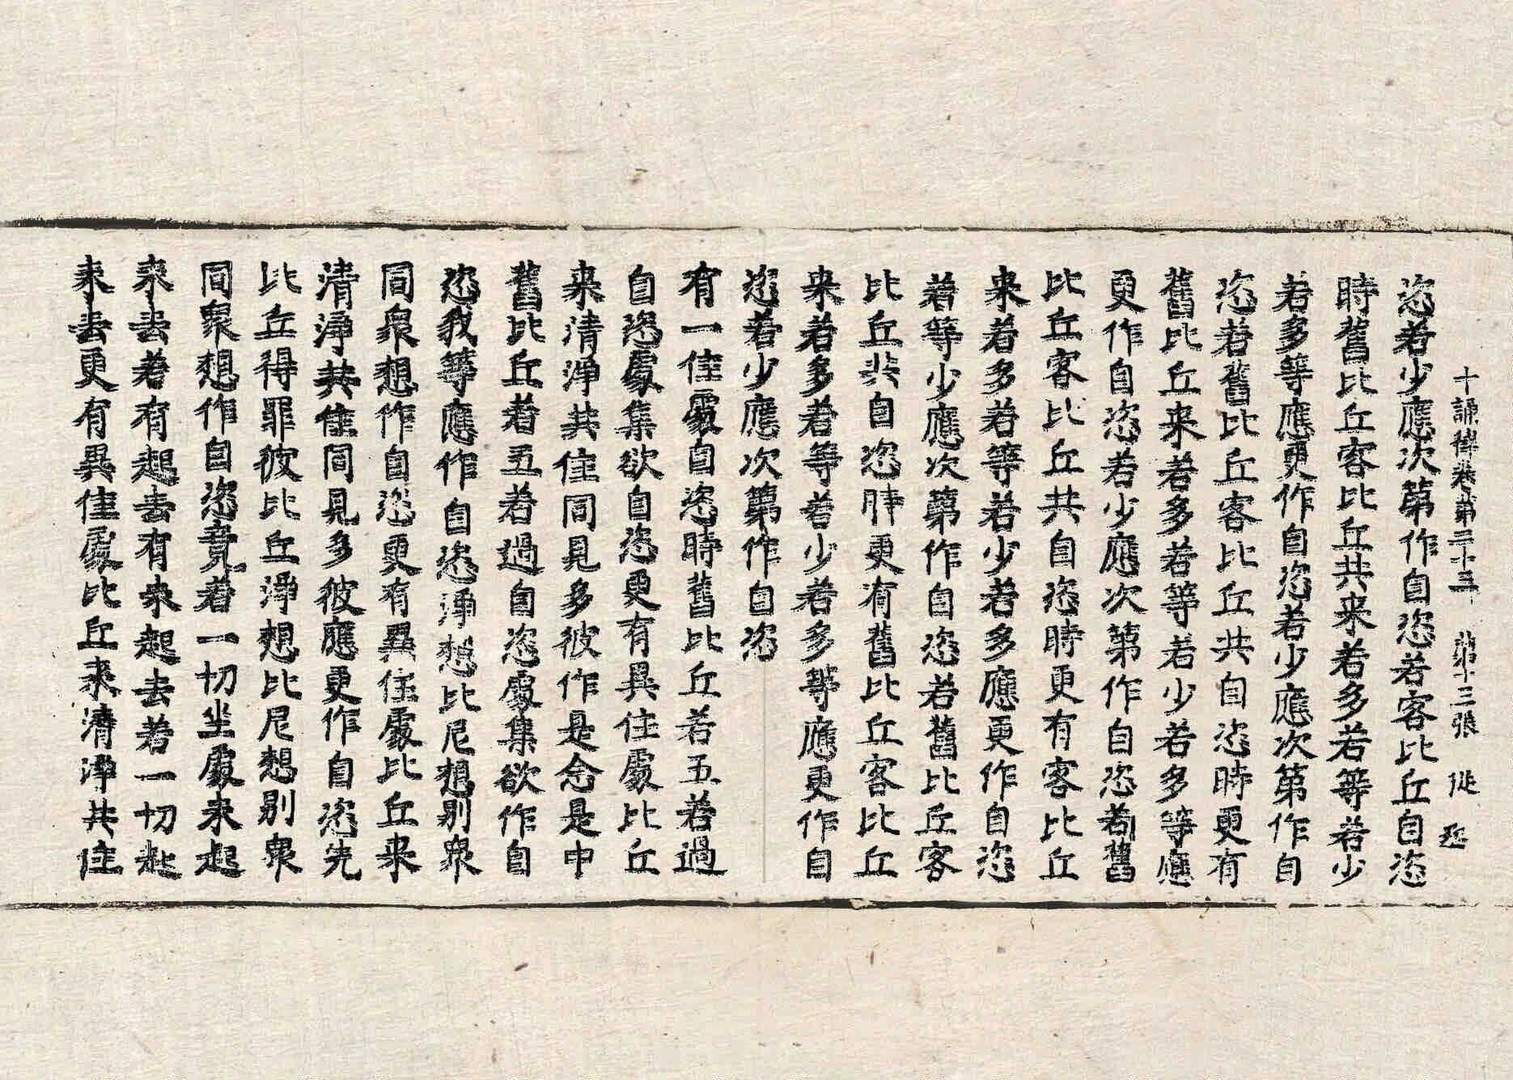 十誦律卷第二十三　第十三張
恣若少應次第作自恣若客比丘自恣
時舊比丘客比丘共来若多若等若少
若多等應更作自恣若少應次第作自
恣若舊比丘客比丘共自恣時更有
舊比丘来若多若等若少若多等應
更作自恣若少應次第作自恣若舊
比丘客比丘共自恣時更有客比丘
来若多若等若少若多應更作自恣
若等少應次第作自恣若舊比丘客
比丘共自恣時更有舊比丘客比丘
来若多若等若少若多等應更作自
恣若少應次第作自恣
有一住處自恣時舊比丘若五若過
自恣處集欲自恣更有異住處比丘
来清淨共住同見多彼作是念是中
舊比丘若五若過自恣處集欲作自
恣我等應作自恣淨想比尼想別衆
同衆想作自恣更有異住處比丘来
清淨共住同見多彼應更作自恣先
比丘得罪彼比丘淨想比尼想別衆
同衆想作自恣竟若一切坐處未起
未去若有起去有未起去若一切起
未去更有異住處比丘来清淨共住